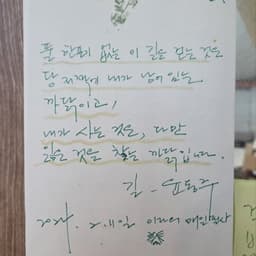 풀 한포기 없는 이 길을 걷는 것은
담 저쪽에 내가 남아 있는
까닭이고,
내가 사는 것은, 다만
잃은 것을 찾는 까닭입니다.
길 - 윤동주
2024. 2. 11일